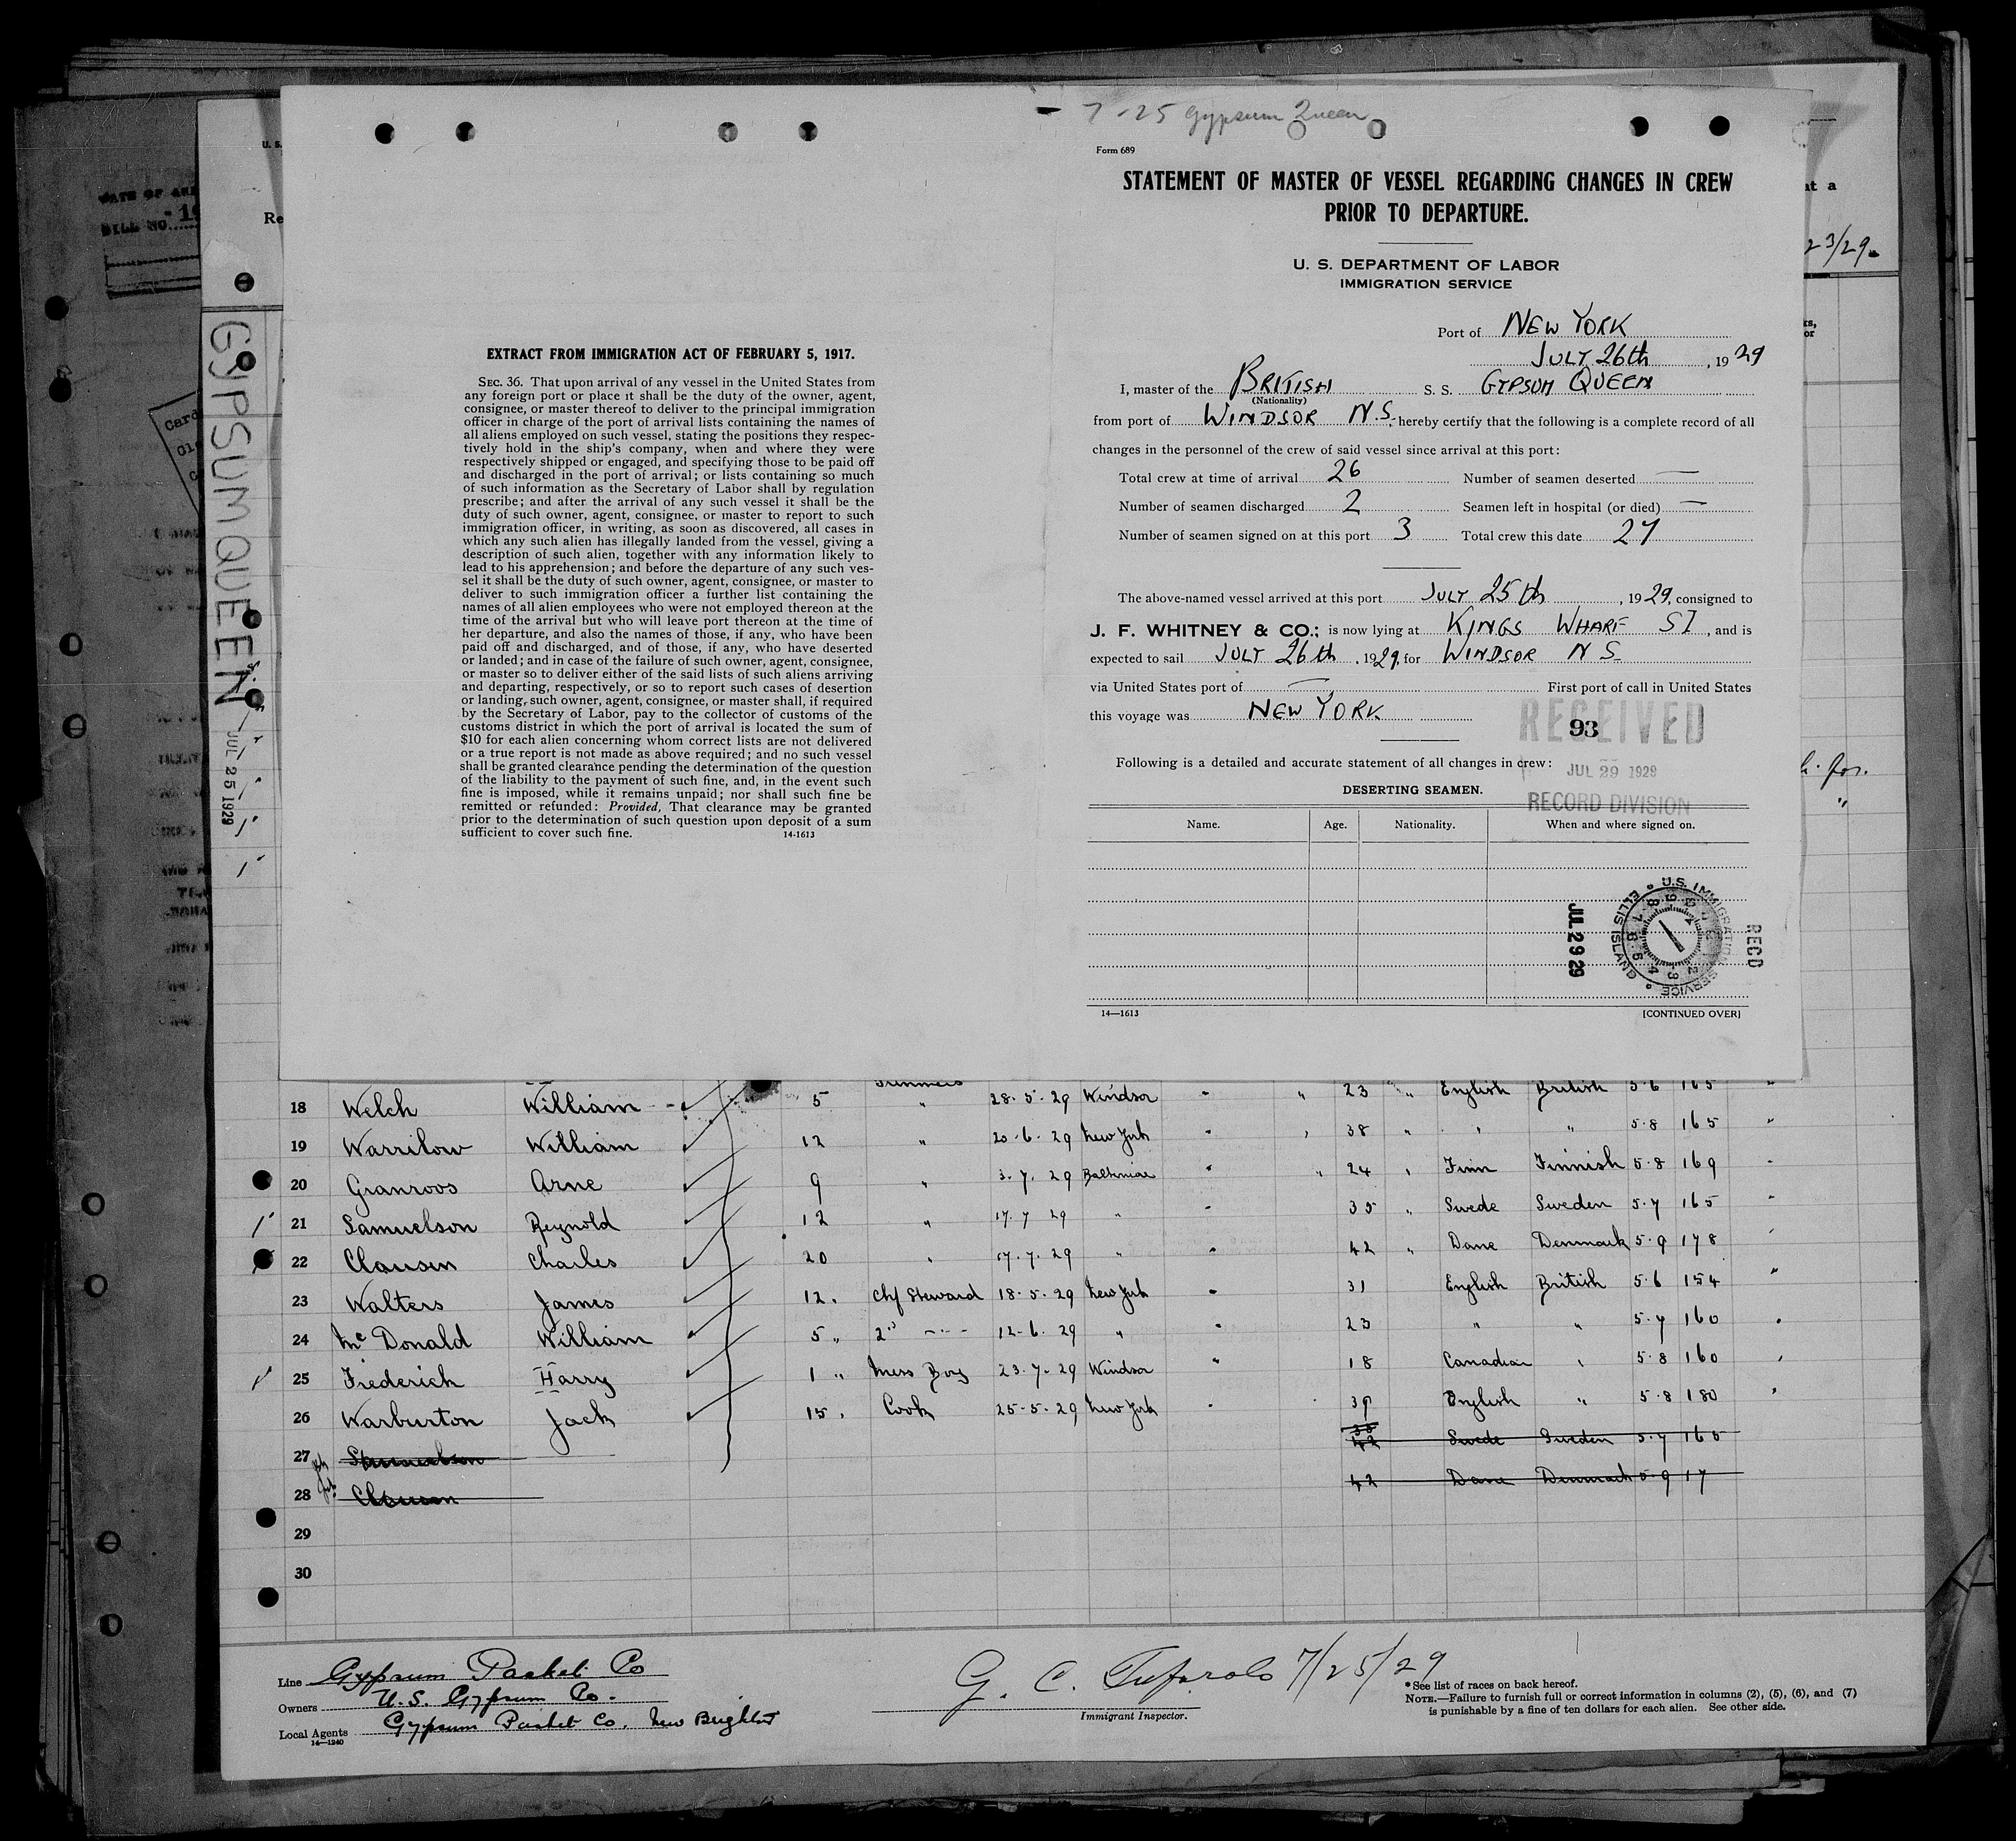 7-25 Gypsum Queen
Form 689
STATEMENT OF MASTER OF VESSEL REGARDING CHANGES IN CREW
PRIOR TO DEPARTURE.
U. S. DEPARTMENT OF LABOR
IMMIGRATION SERVICE
Port of NEW YORK
JULY 26th, 1929
I, master of the BRITISH S. S. GYPSUM QUEEN
(Nationality)
from port of WINDSOR N.S., hereby certify that the following is a complete record of all
changes in the personnel of the crew of said vessel since arrival at this port:
Total crew at time of arrival 26 Number of seamen deserted —
Number of seamen discharged 2 Seamen left in hospital (or died) —
Number of seamen signed on at this port 3 Total crew this date 27
The above-named vessel arrived at this port JULY 25th, 1929, consigned to
J. F. WHITNEY & CO.; is now lying at KINGS WHARF SI, and is
expected to sail JULY 26th, 1929, for WINDSOR N S
via United States port of — First port of call in United States
this voyage was NEW YORK
RECEIVED
93
Following is a detailed and accurate statement of all changes in crew:
JUL 29 1929
DESERTING SEAMEN.
RECORD DIVISION
Name. Age. Nationality. When and where signed on.
JUL 29 29
U.S. IMMIGRATION SERVICE ELLIS ISLAND
RECD
14—1613 [CONTINUED OVER]
EXTRACT FROM IMMIGRATION ACT OF FEBRUARY 5, 1917.
SEC. 36. That upon arrival of any vessel in the United States from
any foreign port or place it shall be the duty of the owner, agent,
consignee, or master thereof to deliver to the principal immigration
officer in charge of the port of arrival lists containing the names of
all aliens employed on such vessel, stating the positions they respec-
tively hold in the ship's company, when and where they were
respectively shipped or engaged, and specifying those to be paid off
and discharged in the port of arrival; or lists containing so much
of such information as the Secretary of Labor shall by regulation
prescribe; and after the arrival of any such vessel it shall be the
duty of such owner, agent, consignee, or master to report to such
immigration officer, in writing, as soon as discovered, all cases in
which any such alien has illegally landed from the vessel, giving a
description of such alien, together with any information likely to
lead to his apprehension; and before the departure of any such ves-
sel it shall be the duty of such owner, agent, consignee, or master to
deliver to such immigration officer a further list containing the
names of all alien employees who were not employed thereon at the
time of the arrival but who will leave port thereon at the time of
her departure, and also the names of those, if any, who have been
paid off and discharged, and of those, if any, who have deserted
or landed; and in case of the failure of such owner, agent, consignee,
or master so to deliver either of the said lists of such aliens arriving
and departing, respectively, or so to report such cases of desertion
or landing, such owner, agent, consignee, or master shall, if required
by the Secretary of Labor, pay to the collector of customs of the
customs district in which the port of arrival is located the sum of
$10 for each alien concerning whom correct lists are not delivered
or a true report is not made as above required; and no such vessel
shall be granted clearance pending the determination of the question
of the liability to the payment of such fine, and, in the event such
fine is imposed, while it remains unpaid; nor shall such fine be
remitted or refunded: Provided, That clearance may be granted
prior to the determination of such question upon deposit of a sum
sufficient to cover such fine. 14-1613
GYPSUM QUEEN
JUL 25 1929
18 Welch William 5 " 28-5-29 Windsor " " 23 " English British 5.6 165 "
19 Warrilow William 12 " 20-6-29 New York " " 38 " " " 5.8 165 "
20 Granroos Arne 9 " 3.7.29 Baltimore " " 24 " Finn Finnish 5.8 169 "
21 Samuelson Reynold 12 " 17.7.29 " " 35 " Swede Sweden 5.7 165 "
22 Clausen Charles 20 " 17.7.29 " " 42 " Dane Denmark 5.9 178 "
23 Walters James 12 " Chf Steward 18.5.29 New York " 31 English British 5.6 154 "
24 McDonald William 5 " 2nd 12-6.29 " " 23 " " 5.7 160 "
25 Friederich Harry 1 " Mess Boy 23.7.29 Windsor " 18 Canadian " 5.8 160 "
26 Warburton Jack 15 " Cook 25-5-29 New York " 39 English " 5.8 180 "
27 Samuelson 42 Swede Sweden 5.7 165
28 Clausen 42 Dane Denmark 5.9 17
29
30
Line Gypsum Packet Co
Owners U.S. Gypsum Co.
Local Agents Gypsum Packet Co. New Brighton
14—1240
7/25/29
Immigrant Inspector.
*See list of races on back hereof.
NOTE.—Failure to furnish full or correct information in columns (2), (5), (6), and (7)
is punishable by a fine of ten dollars for each alien. See other side.